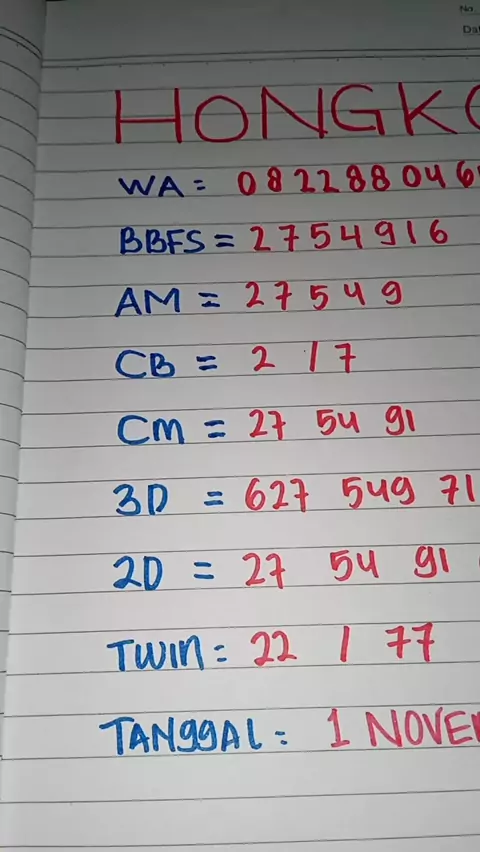 No.
HONGK
WA = 082288046
BBFS = 2754916
AM = 27549
CB = 2 / 7
CM = 27 54 91
3D = 627 549 71
2D = 27 54 91
TWIN = 22 / 77
TANGGAL = 1 NOVE